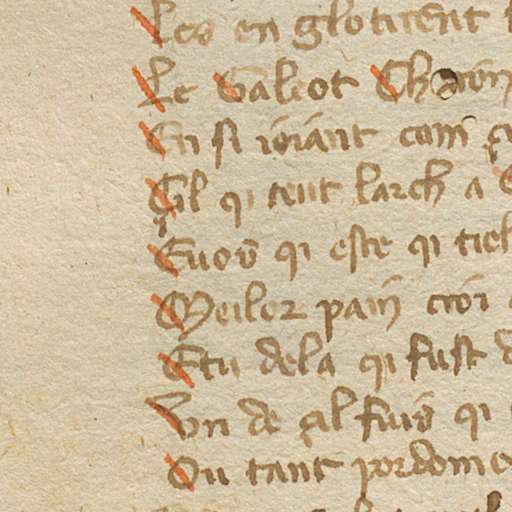 Les en glotirent
Le Galiot Charon
En si ioiant com
Cil qi tent larch a
Euos qi este qi tiel
Meilor pain croi
Etu dela qi fust d
Un de cil fuis qi
Ou tant pordome